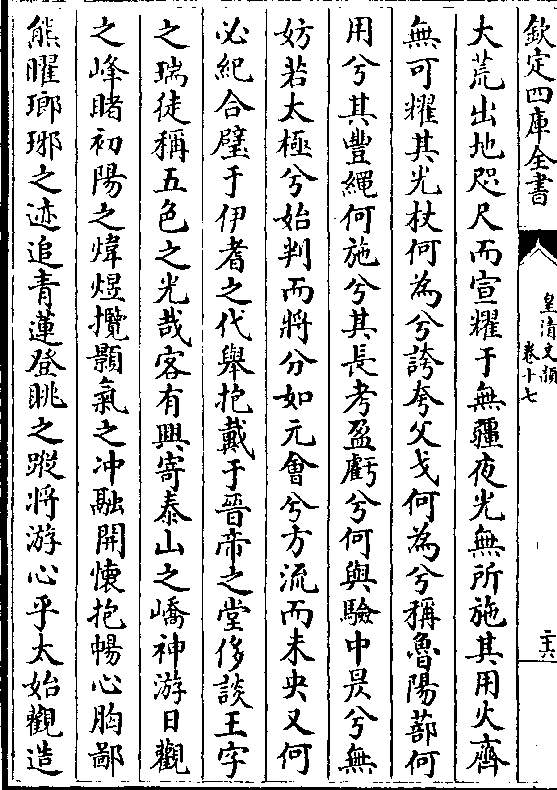 欽定四庫全書
皇清文穎
卷十七
二十六
大荒出地咫尺而宣耀于無疆夜光無所施其用火齊
無可耀其光杖何為兮誇夸父戈何為兮稱魯陽蔀何
用兮其豐繩何施兮其長考盈虧兮何與驗中昃兮無
妨若太極兮始判而將分如元會兮方流而未央又何
必紀合璧于伊耆之代舉抱戴于晉帝之堂侈談王字
之瑞徒稱五色之光哉客有興寄泰山之嶠神游日觀
之峰睹初陽之煒煜攬顥氣之冲融開懷抱暢心胸鄙
熊曜瑯琊之迹追青蓮登眺之蹤將游心乎太始觀造